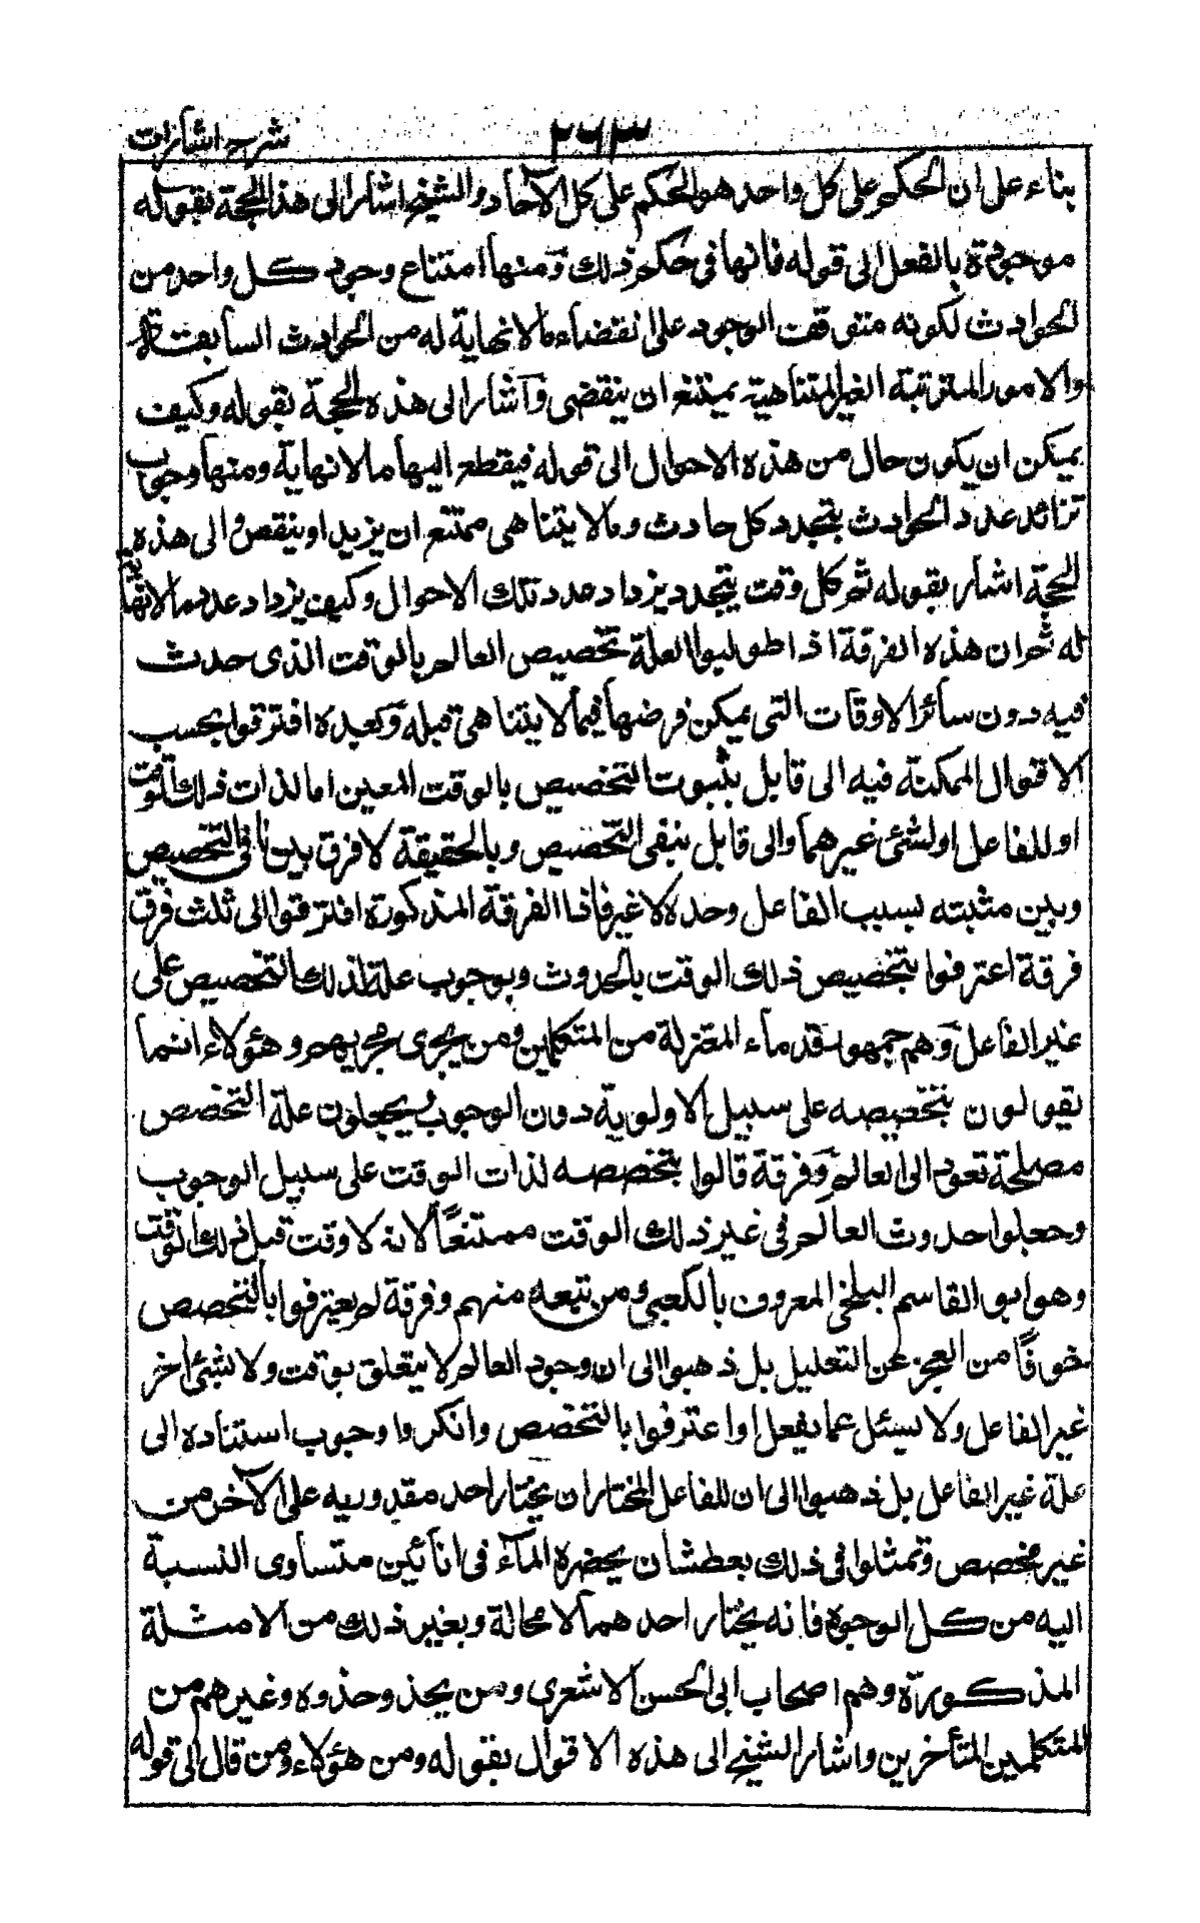 شرح اشارات
٢٦٣
بناء على ان الحكم على كل واحد هو الحكم على كل الآحاد والشيخ اشار الى هذا الحجة بقوله
موجودة بالفعل الى قوله فانها فى حكم ذلك ومنها امتناع وجود كل واحد من
الحوادث لكونه متوقف الوجود على انقضاء مالا نهاية له من الحوادث السابقة
والامور المترتبة الغير المتناهية يمتنع ان ينقضى وآشار الى هذه الحجة بقوله وكيف
يمكن ان يكون حال من هذه الاحوال الى قوله فيقطع اليها مالا نهاية ومنها وجوب
تزائد عدد الحوادث بتجدد كل حادث ومالا يتناهى ممتنع ان يزيد او ينقص والى هذه
الحجة اشار بقوله ثم كل وقت يتجدد يزداد عدد تلك الاحوال وكيف يزداد عدد مالا نهاية
له ثم ان هذه الفرقة اذا طولبوا العلة تخصيص العالم بالوقت الذى حدث
فيه دون سائر الاوقات التى يمكن فرضها فيما لا يتناهى قبله وبعده افترقوا بحسب
الاقوال الممكنة فيه الى قايل بثبوت التخصيص بالوقت المعين اما لذات ذلك الوقت
او للفاعل او لشئ غيرهما والى قابل بنفى التخصيص وبالحقيقة لا فرق بين نافى التخصيص
وبين مثبته بسبب الفاعل وحده لا غير فاذا الفرقة المذكورة افترقوا الى ثلث فرق
فرقة اعترفوا بتخصيص ذلك الوقت بالحدوث وبوجوب علة لذلك التخصيص على
غير الفاعل وهم جمهور قدماء المعتزلة من المتكلمين ومن يجرى مجريهم وهؤلاء انما
يقولون بتخصيصه على سبيل الاولوية دون الوجوب ويجعلون علة التخصص
مصلحة تعود الى العالم وفرقة قالوا بتخصصه لذات الوقت على سبيل الوجوب
وجعلوا حدوث العالم فى غير ذلك الوقت ممتنعًا لانه لا وقت قبل ذلك الوقت
وهو ابو القاسم البلخى المعروف بالكعبى ومن تبعه منهم وفرقة لم يعترفوا بالتخصص
خوفًا من العجز عن التعليل بل ذهبوا الى ان وجود العالم لا يتعلق بوقت ولا بشئ آخر
غير الفاعل ولا يسئل عما يفعل او اعترفوا بالتخصص وانكروا وجوب استناده الى
علة غير الفاعل بل ذهبوا الى ان للفاعل المختار ان يختار احد مقدوريه على الآخر من
غير مخصص وتمثلوا فى ذلك بعطشان يحضره المآء فى انائين متساوى النسبة
اليه من كل الوجوه فانه يختار احدهما لا محالة وبغير ذلك من الامثلة
المذكورة وهم اصحاب ابى الحسن الاشعرى ومن يحذو حذوه وغيرهم من
المتكلمين المتأخرين واشار الشيخ الى هذه الاقوال بقوله ومن هؤلاء ومن قال الى قوله